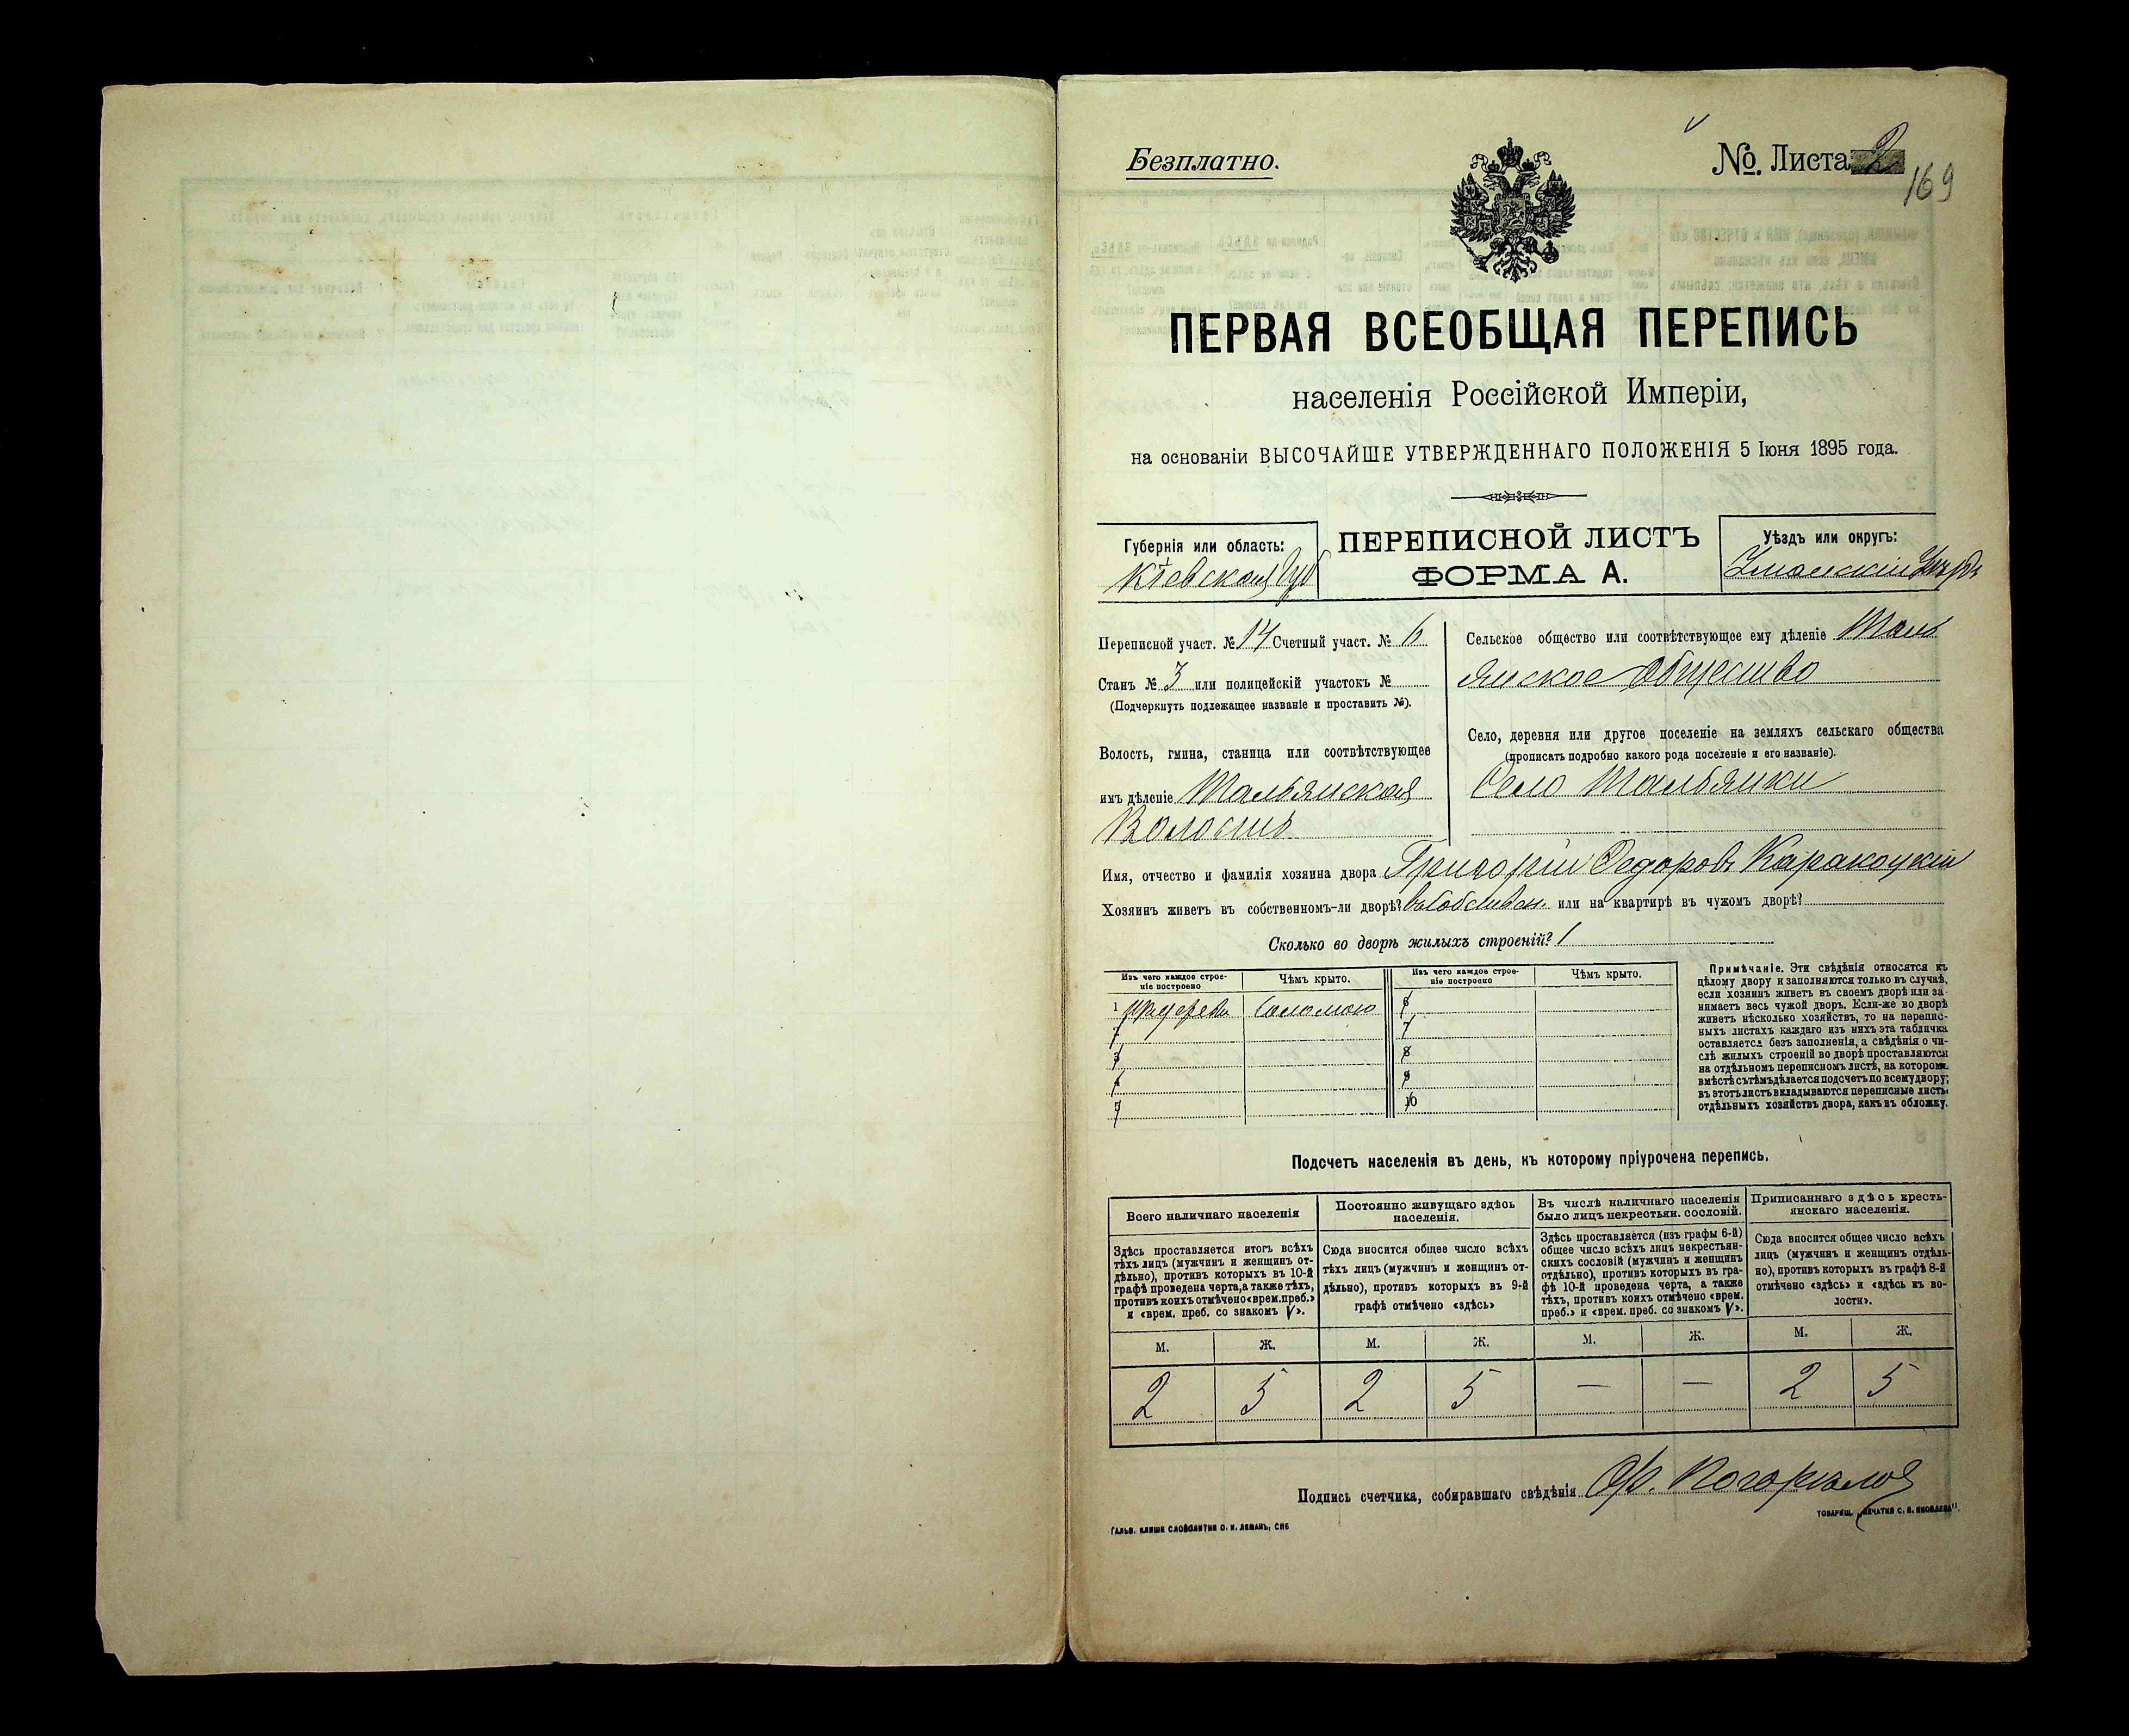 Безплатно.
№. Листа 2
169
ПЕРВАЯ ВСЕОБЩАЯ ПЕРЕПИСЬ
населенія Россійской Имперіи,
на основаніи ВЫСОЧАЙШЕ УТВЕРЖДЕННАГО ПОЛОЖЕНІЯ 5 Іюня 1895 года.
Губернія или область:
Кіевская Губ
ПЕРЕПИСНОЙ ЛИСТЪ
ФОРМА А.
Уѣздъ или округъ:
Уманскій Уѣздъ
Переписной участ. № 14 Счетный участ. № 6
Станъ № 3 или полицейскій участокъ №
(Подчеркнуть подлежащее названіе и проставить №).
Волость, гмина, станица или соотвѣтствующее
имъ дѣленіе Тальянская
Волость
Сельское общество или соотвѣтствующее ему дѣленіе Таль
янское Общество
Село, деревня или другое поселеніе на земляхъ сельскаго общества
(прописать подробно какого рода поселеніе и его названіе).
Село Тальянки
Имя, отчество и фамилія хозяина двора Григорій Федоровъ
Хозяинъ живетъ въ собственномъ-ли дворѣ? въ собствен. или на квартирѣ въ чужомъ дворѣ?
Сколько во дворѣ жилыхъ строеній? 1
Изъ чего каждое строе-
ніе построено
Чѣмъ крыто.
Изъ чего каждое строе-
ніе построено
Чѣмъ крыто.
1 Соломою 6
2 7
3 8
4 9
5 10
Примѣчаніе. Эти свѣдѣнія относятся къ
цѣлому двору и заполняются только въ случаѣ,
если хозяинъ живетъ въ своемъ дворѣ или за-
нимаетъ весь чужой дворъ. Если-же во дворѣ
живетъ нѣсколько хозяйствъ, то на перепис-
ныхъ листахъ каждаго изъ нихъ эта табличка
оставляется безъ заполненія, а свѣдѣнія о чи-
слѣ жилыхъ строеній во дворѣ проставляются
на отдѣльномъ переписномъ листѣ, на которомъ
вмѣстѣ съ тѣмъ дѣлается подсчетъ по всему двору;
въ этотъ листъ вкладываются переписные листы
отдѣльныхъ хозяйствъ двора, какъ въ обложку.
Подсчетъ населенія въ день, къ которому пріурочена перепись.
Всего наличнаго населенія
Здѣсь проставляется итогъ всѣхъ
тѣхъ лицъ (мужчинъ и женщинъ от-
дѣльно), противъ которыхъ въ 10-й
графѣ проведена черта, а также тѣхъ,
противъ коихъ отмѣчено «врем. преб.»
и «врем. преб. со знакомъ V».
Постоянно живущаго здѣсь
населенія.
Сюда вносится общее число всѣхъ
тѣхъ лицъ (мужчинъ и женщинъ от-
дѣльно), противъ которыхъ въ 9-й
графѣ отмѣчено «здѣсь»
Въ числѣ наличнаго населенія
было лицъ некрестьян. сословій.
Здѣсь проставляется (изъ графы 6-й)
общее число всѣхъ лицъ некрестьян-
скихъ сословій (мужчинъ и женщинъ
отдѣльно), противъ которыхъ въ гра-
фѣ 10-й проведена черта, а также
тѣхъ, противъ коихъ отмѣчено «врем.
преб.» и «врем. преб. со знакомъ V».
Приписаннаго здѣсь кресть-
янскаго населенія.
Сюда вносится общее число всѣхъ
лицъ (мужчинъ и женщинъ отдѣль-
но), противъ которыхъ въ графѣ 8-й
отмѣчено «здѣсь» и «здѣсь къ во-
лости».
М. Ж. М. Ж. М. Ж. М. Ж.
2 5 2 5 — — 2 5
Подпись счетчика, собиравшаго свѣдѣнія
ТОВАРИЩ. „ПЕЧАТНЯ С. П. ЯКОВЛЕВА".
ГАЛЬВ. КЛИШЕ СЛОВОЛИТНИ О. И. ЛЕМАНЪ, СПБ